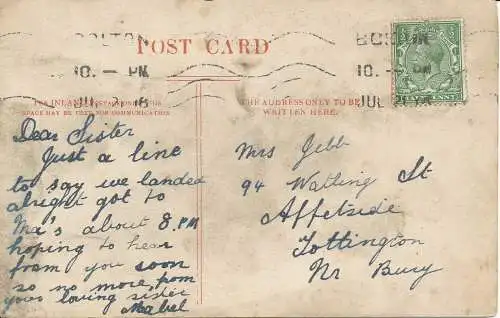 BOLTON
10. — PM
JUL 2 18
POST CARD
BOLTON
10. — PM
JUL
FOR INLAND
SPACE MAY BE USED FOR COMMUNICATION
THE ADDRESS ONLY TO BE
WRITTEN HERE.
Dear Sister
Just a line
to say we landed
alright got to
Ma's about 8.PM
hoping to hear
from you soon
so no more, from
your loving sister
Mabel
Mrs Jebb
94 Watling St
Affetside
Tottington
Nr Bury